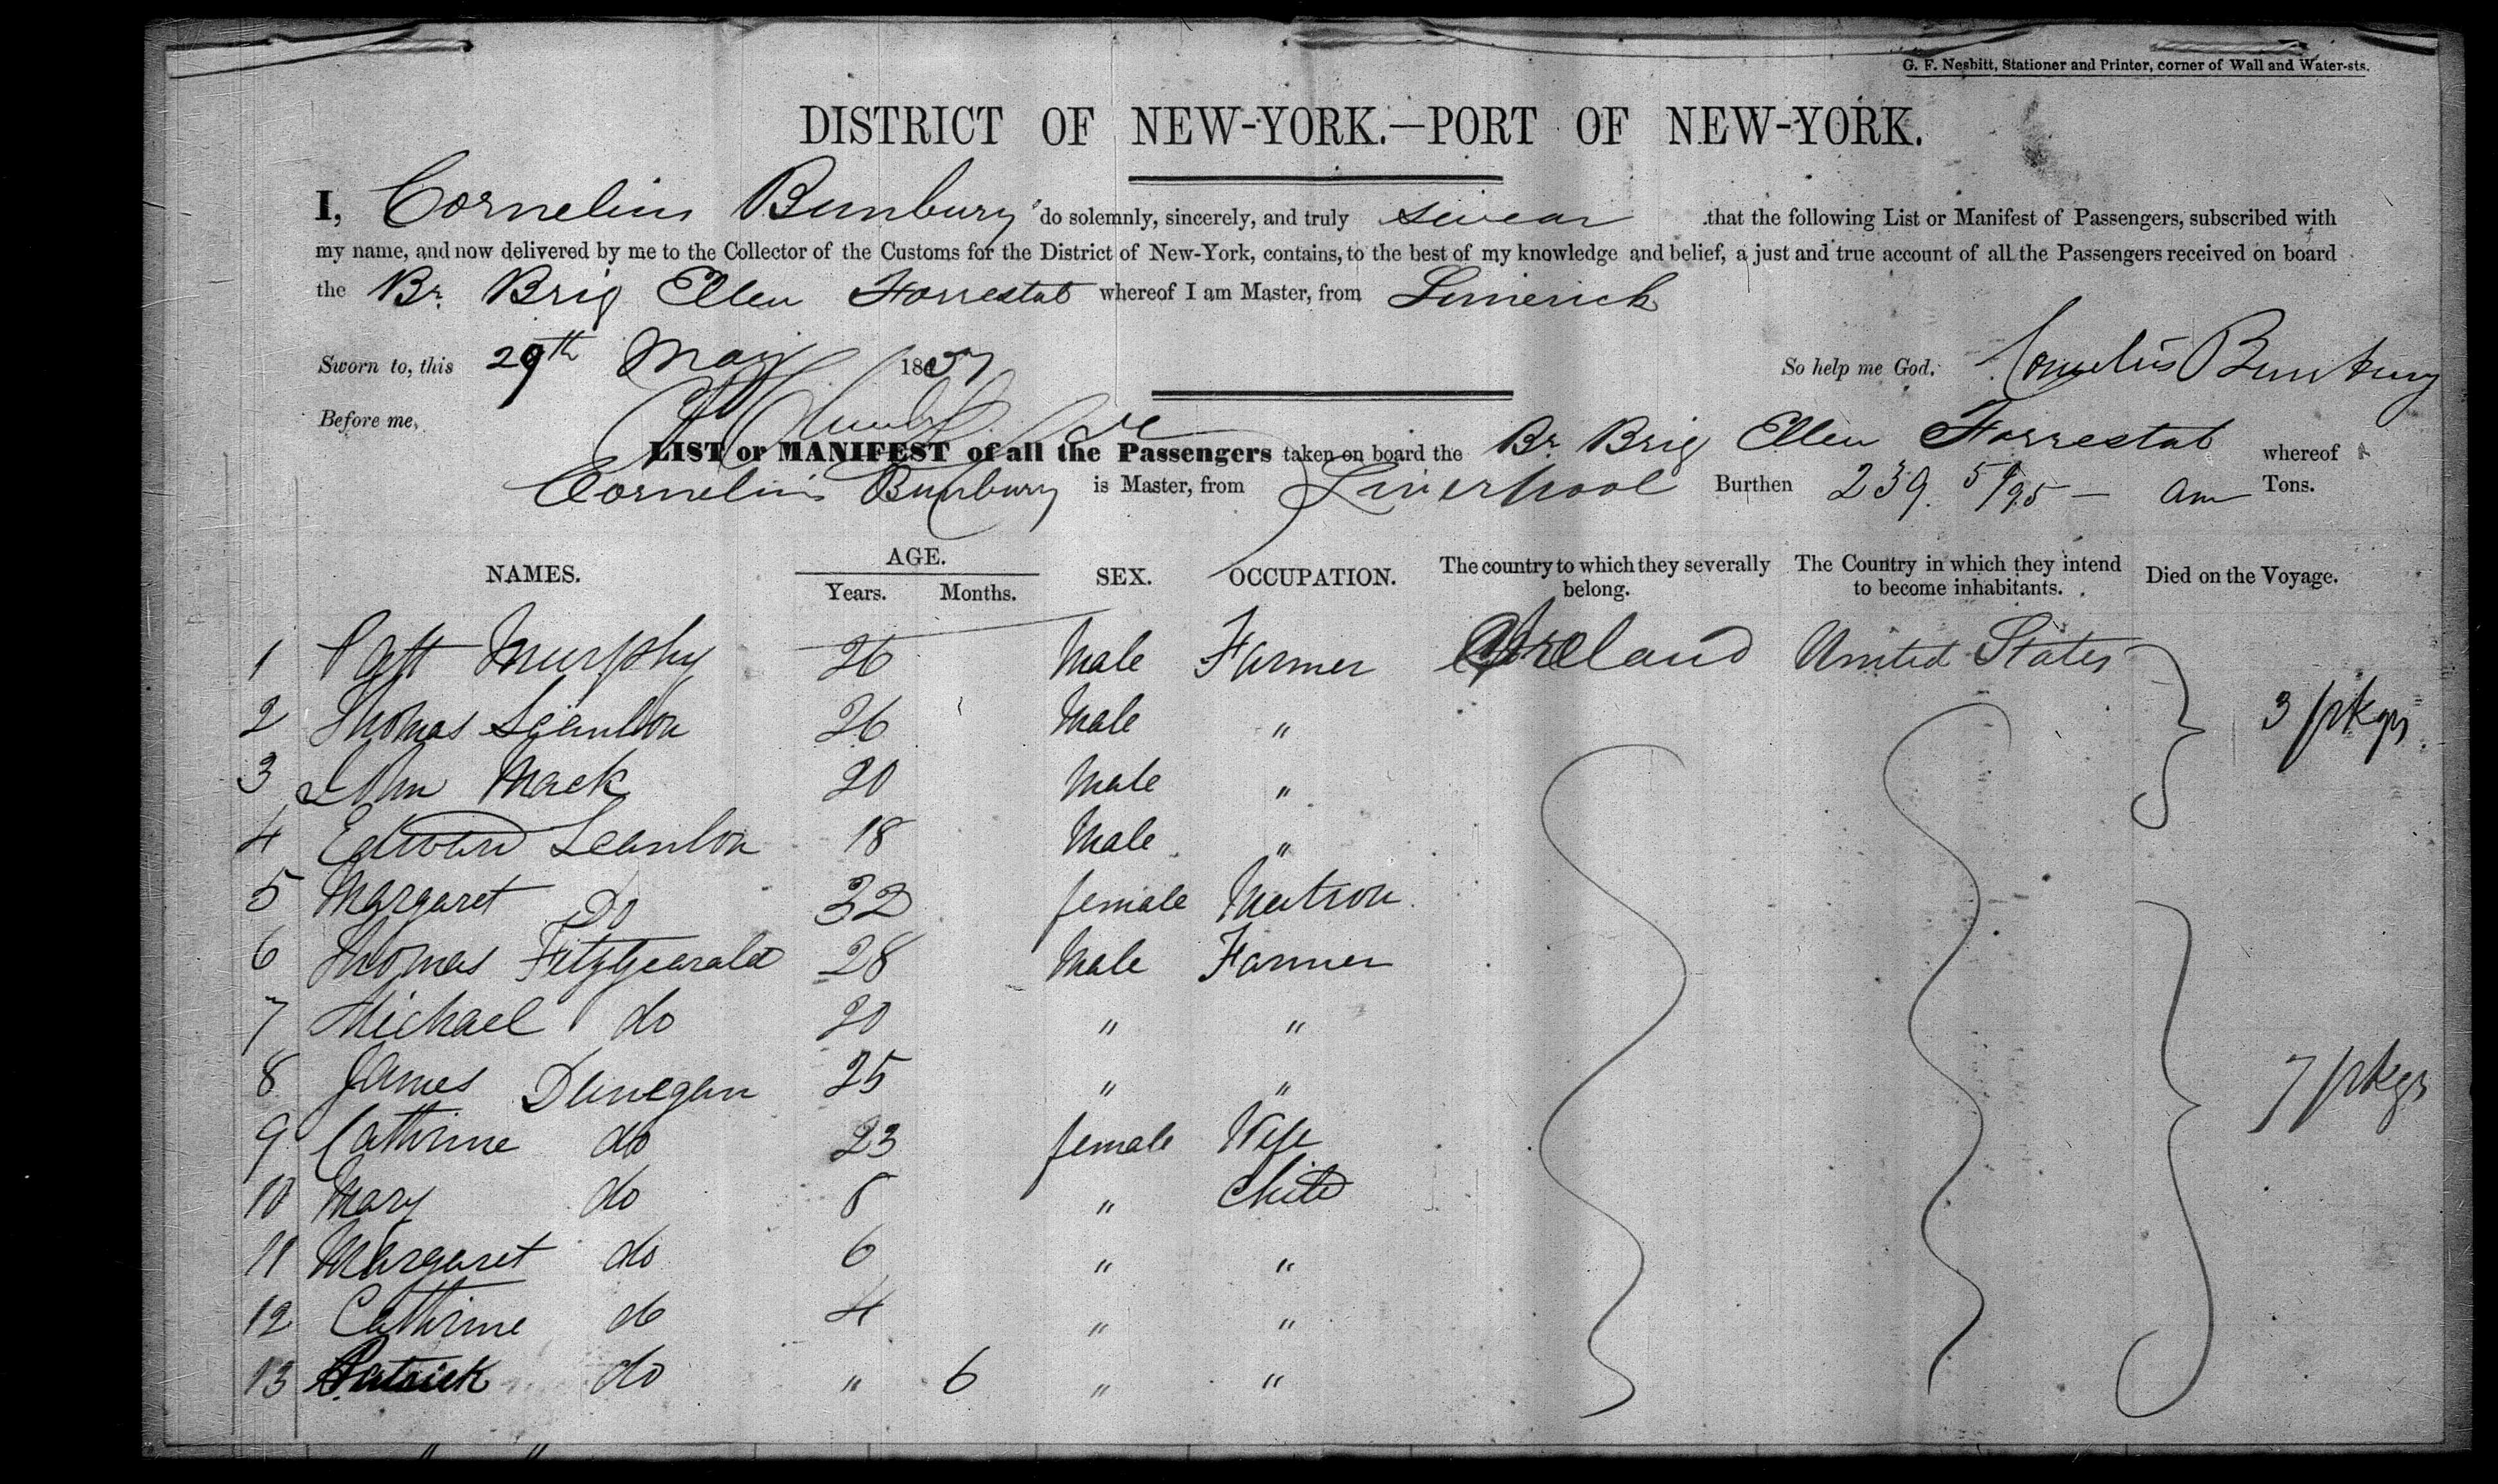 G. F. Nesbitt, Stationer and Printer, corner of Wall and Water-sts.
DISTRICT OF NEW-YORK.—PORT OF NEW-YORK.
I, Cornelius Bunbury do solemnly, sincerely, and truly swear that the following List or Manifest of Passengers, subscribed with
my name, and now delivered by me to the Collector of the Customs for the District of New-York, contains, to the best of my knowledge and belief, a just and true account of all the Passengers received on board
the Br. Brig Ellen Forrestal whereof I am Master, from Limerick
Sworn to, this 29th May 18 So help me God. Cornelius Bunbury
Before me,
LIST or MANIFEST of all the Passengers taken on board the Br. Brig Ellen Forrestal whereof
Cornelius Bunbury is Master, from Liverpool Burthen 239. 5/95 — am Tons.
NAMES. AGE. Years. Months. SEX. OCCUPATION. The country to which they severally belong. The Country in which they intend to become inhabitants. Died on the Voyage.
1 Patt Murphy 26 Male Farmer Ireland United States
2 Thomas Scanlon 26 Male " 3 pkgs
3 John Mack 20 Male "
4 Edward Scanlon 18 Male "
5 Margaret Do 32 female Matron
6 Thomas Fitzgearald 28 Male Farmer
7 Michael do 20 " "
8 James Dunegan 25 " " 7 pkgs
9 Cathrine do 23 female Wife
10 Mary do 8 " Child
11 Margaret do 6 " "
12 Cathrine do 4 " "
13 Patrick do " 6 " "